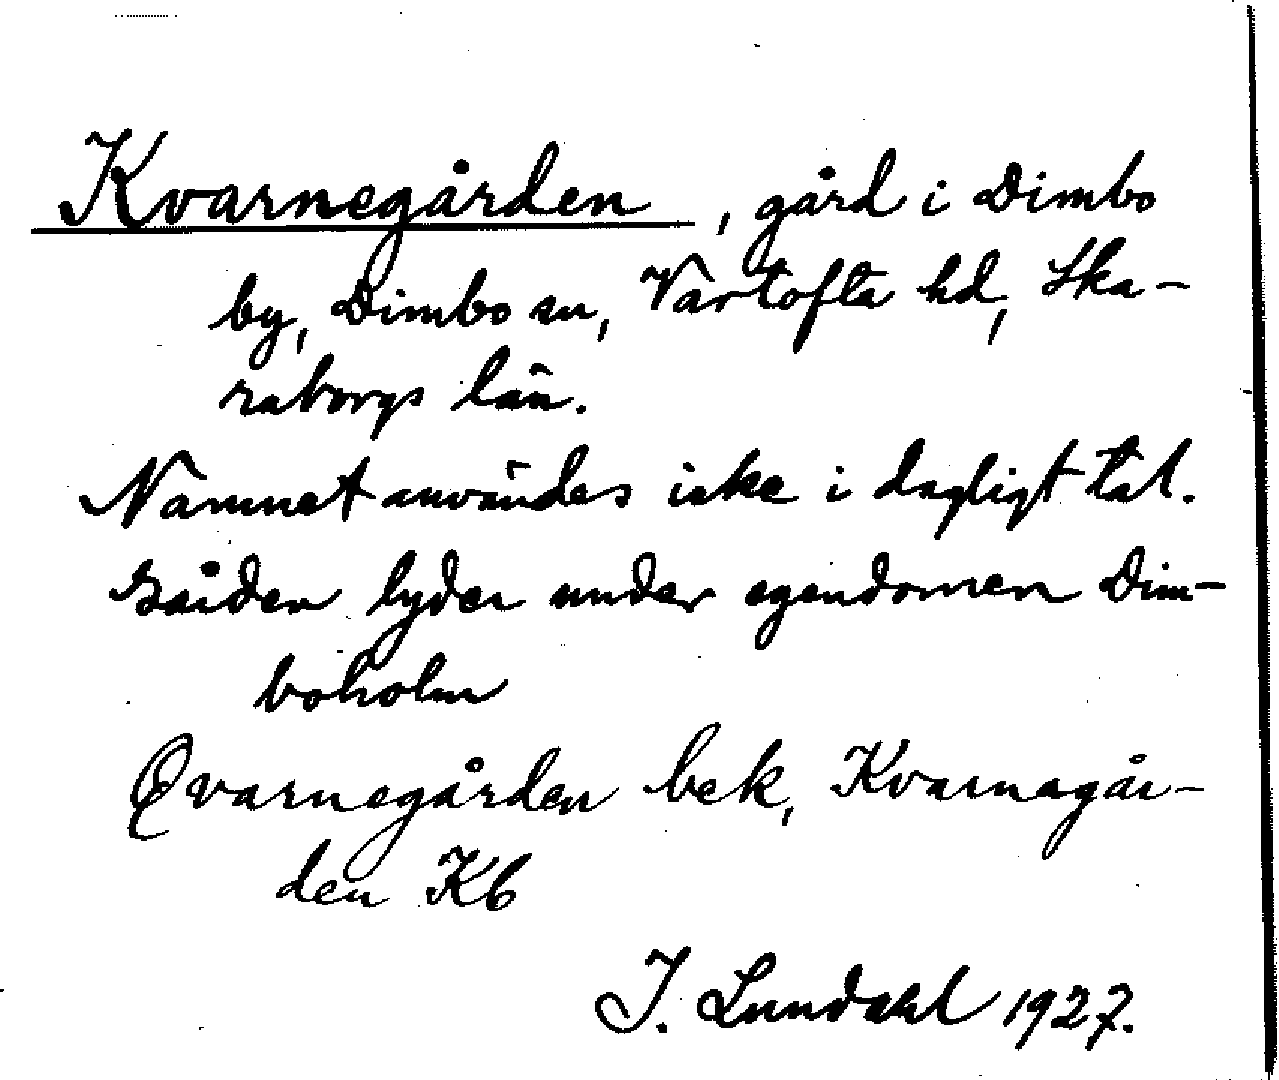 Kvarnegården, gård i Dimbo
by, Dimbo sn, Vartofta hd, Ska-
raborgs län.
Namnet användes icke i dagligt tal.
Gården lyder under egendomen Dim-
boholm
Qvarnegården bek, Kvarnagår-
den Kb
I. Lundahl 1927.